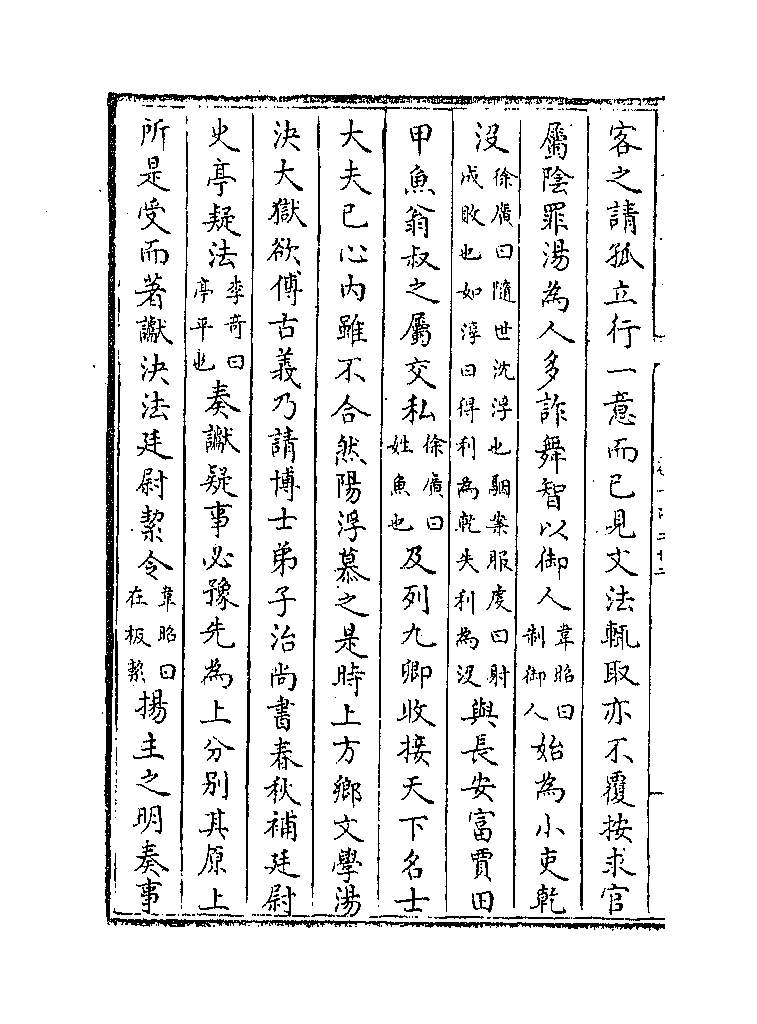 客之請孤立行一意而已見文法輒取亦不覆按求官
屬陰罪湯為人多詐舞智以御人韋昭曰制御人始為小吏乾
没徐廣曰隨世沈浮也駰案服虔曰射成敗也如淳曰得利為乾失利為没與長安富賈田
甲魚翁叔之屬交私徐廣曰姓魚也及列九卿收接天下名士
大夫已心内雖不合然陽浮慕之是時上方鄉文學湯
決大獄欲傅古義乃請博士弟子治尚書春秋補廷尉
史亭疑法李奇曰亭平也奏讞疑事必豫先為上分别其原上
所是受而著讞決法廷尉絜令韋昭曰在板絜揚主之明奏事